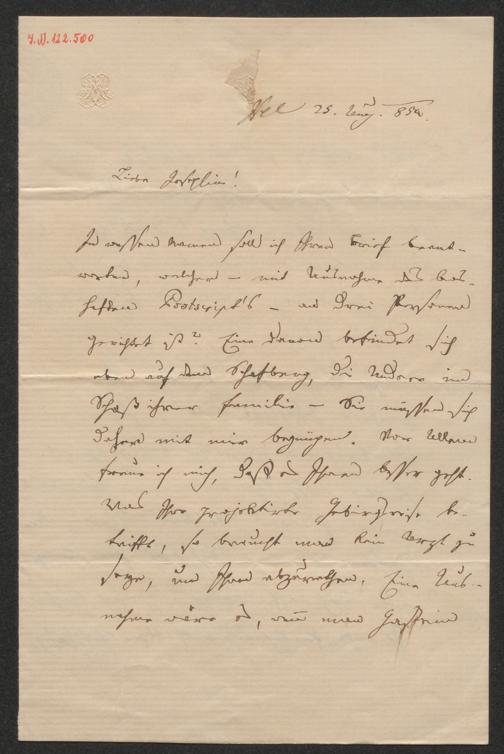 I.N. 122.500
25. Aug. 859.
Liebe Josephine!
In wessen Namen soll ich Ihren Brief beant-
worten, welcher – mit Ausnahme des bos-
haften Postscript's – an drei Personen
gerichtet ist? Eine davon befindet sich
eben auf dem Schafberg, die Andere im
Schooß ihrer Familie – Sie müssen sich
daher mit mir begnügen. Vor Allem
freue ich mich, daß es Ihnen besser geht.
Was Ihre projektirte Gebirgsreise be-
trifft, so braucht man kein Arzt zu
seyn, um Ihnen abzurathen. Eine Aus-
nahme wäre es, wenn man Gastein